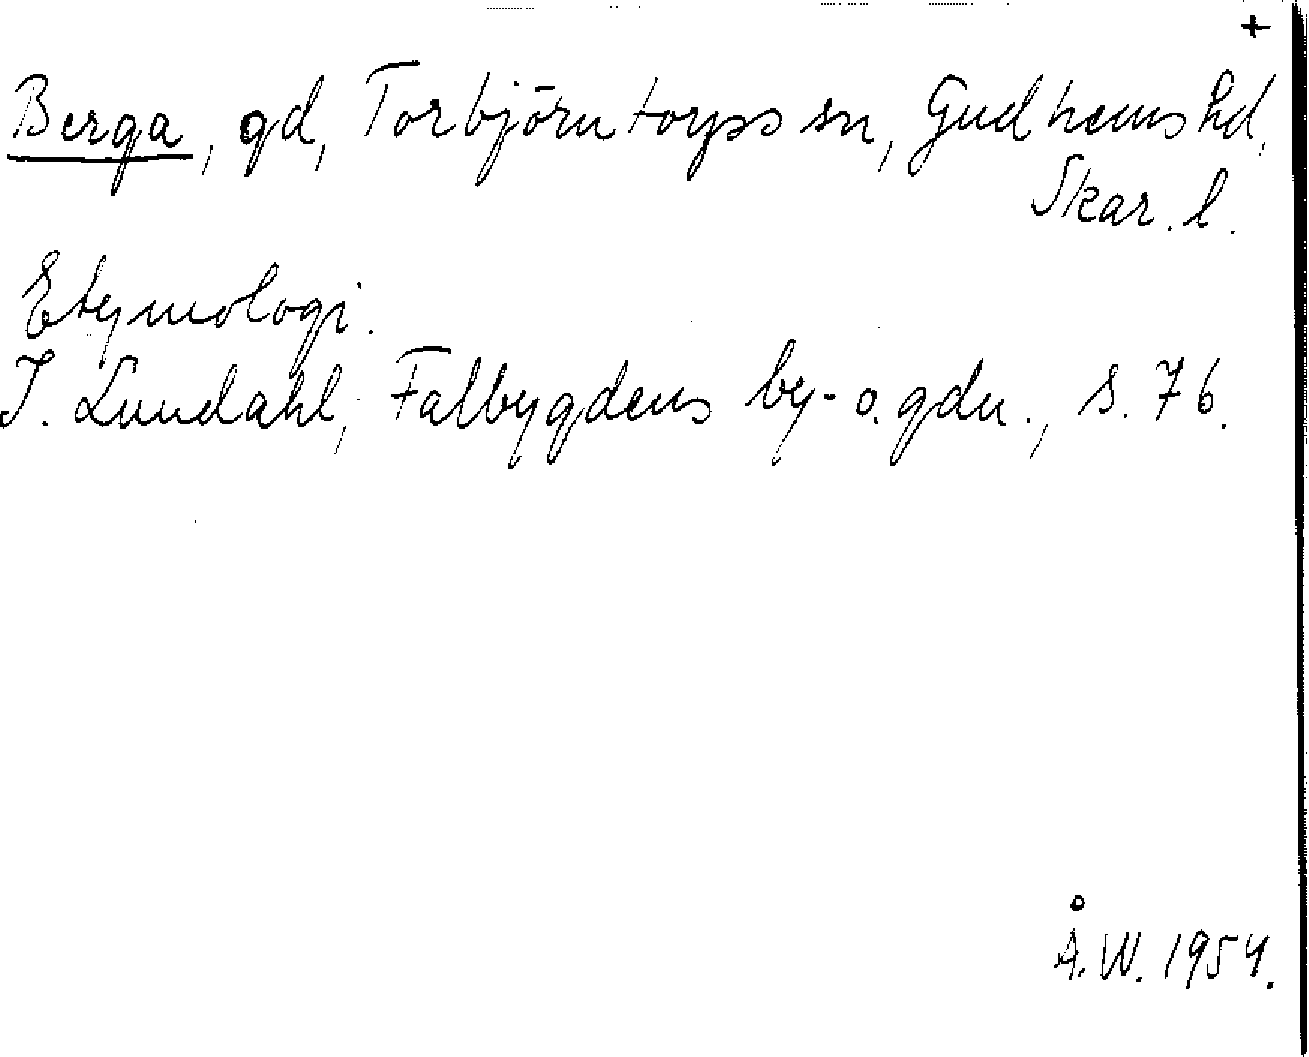 +
Berga, gd, Torbjörntorps sn, Gudhems hd,
Skar. l.
Etymologi.
I. Lundahl, Falbygdens by- o. gdn., s. 76.
Å. W. 1954.